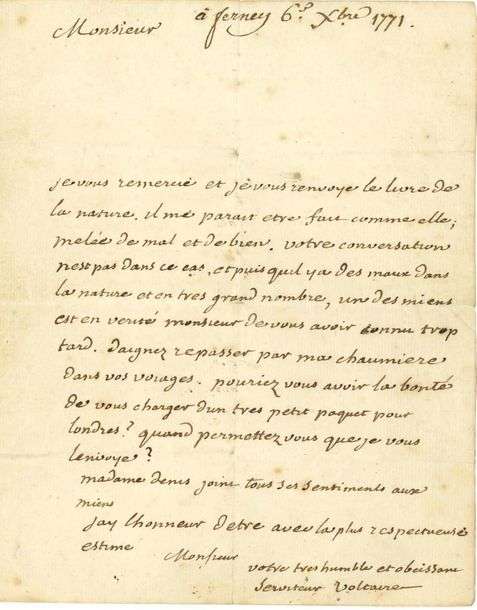 à ferney 6.e Xbre 1771.
Monsieur
je vous remercie et je vous renvoye le livre de
la nature. il me parait etre fait comme elle;
melée de mal et de bien. votre conversation
n'est pas dans ce cas, et puis quil ya des maux dans
la nature et en tres grand nombre, un des miens
est en verité monsieur de vous avoir connu trop
tard. daignez repasser par ma chaumiere
dans vos voiages. pouriez vous avoir la bonté
de vous charger dun tres petit paquet pour
londres? quand permettez vous que je vous
lenvoye?
madame denis joint tous ses sentiments aux
miens
jay lhonneur detre avec la plus respectueuse
estime
Monsieur
votre tres humble et obeissant
serviteur Voltaire